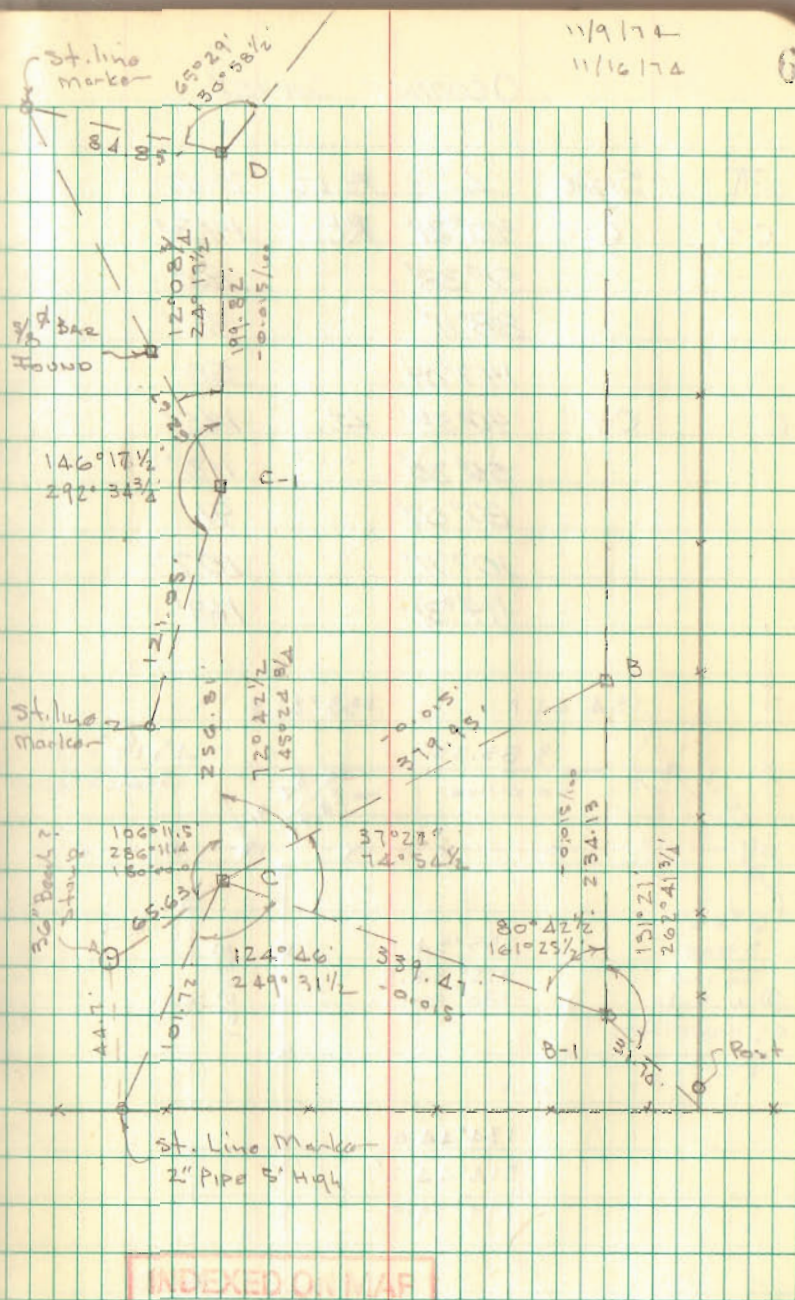 11/9/74
11/16/74
St. line
marker
65°29'
130°58½'
D
12°08¾
24°17½
199.82'
-0.015/100
BAR
FOUND
146°17½'
292°34¾'
C-1
121.05'
St. line
Marker
256.81'
72°42½
145°24¾
B
-0.05'
379.95'
106°11.5'
286°11.4
37°27'
74°54½
-0.015/100
234.13
131°21'
262°41¾'
36" Beech?
Stump
65.63
C
124°46'
249°31½
339.47
-0.05
80°42½
161°25½'
44.7'
101.72
B-1
Post
St. Line Marker
2" Pipe 5' High
INDEXED ON MAP